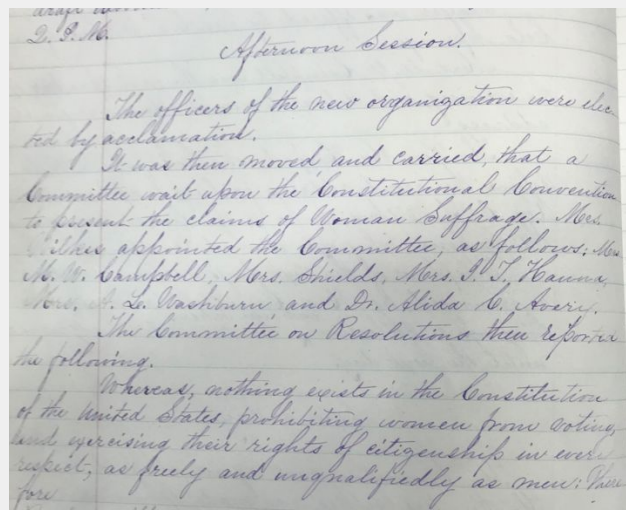 2. P.M.
Afternoon Session.
The officers of the new organization were elec-
ted by acclamation.
It was then moved and carried, that a
Committee wait upon the Constitutional Convention
to present the claims of Woman Suffrage. Mrs.
appointed the Committee, as follows: Mrs.
M. W. Campbell, Mrs. Shields, Mrs. J. T. Hanna,
Mrs. A. L. Washburn and Dr. Alida C. Avery.
The Committee on Resolutions then reported
the following.
Whereas, nothing exists in the Constitution
of the United States, prohibiting women from voting,
and exercising their rights of citizenship in every
respect, as freely and unqualifiedly as men: There-
fore